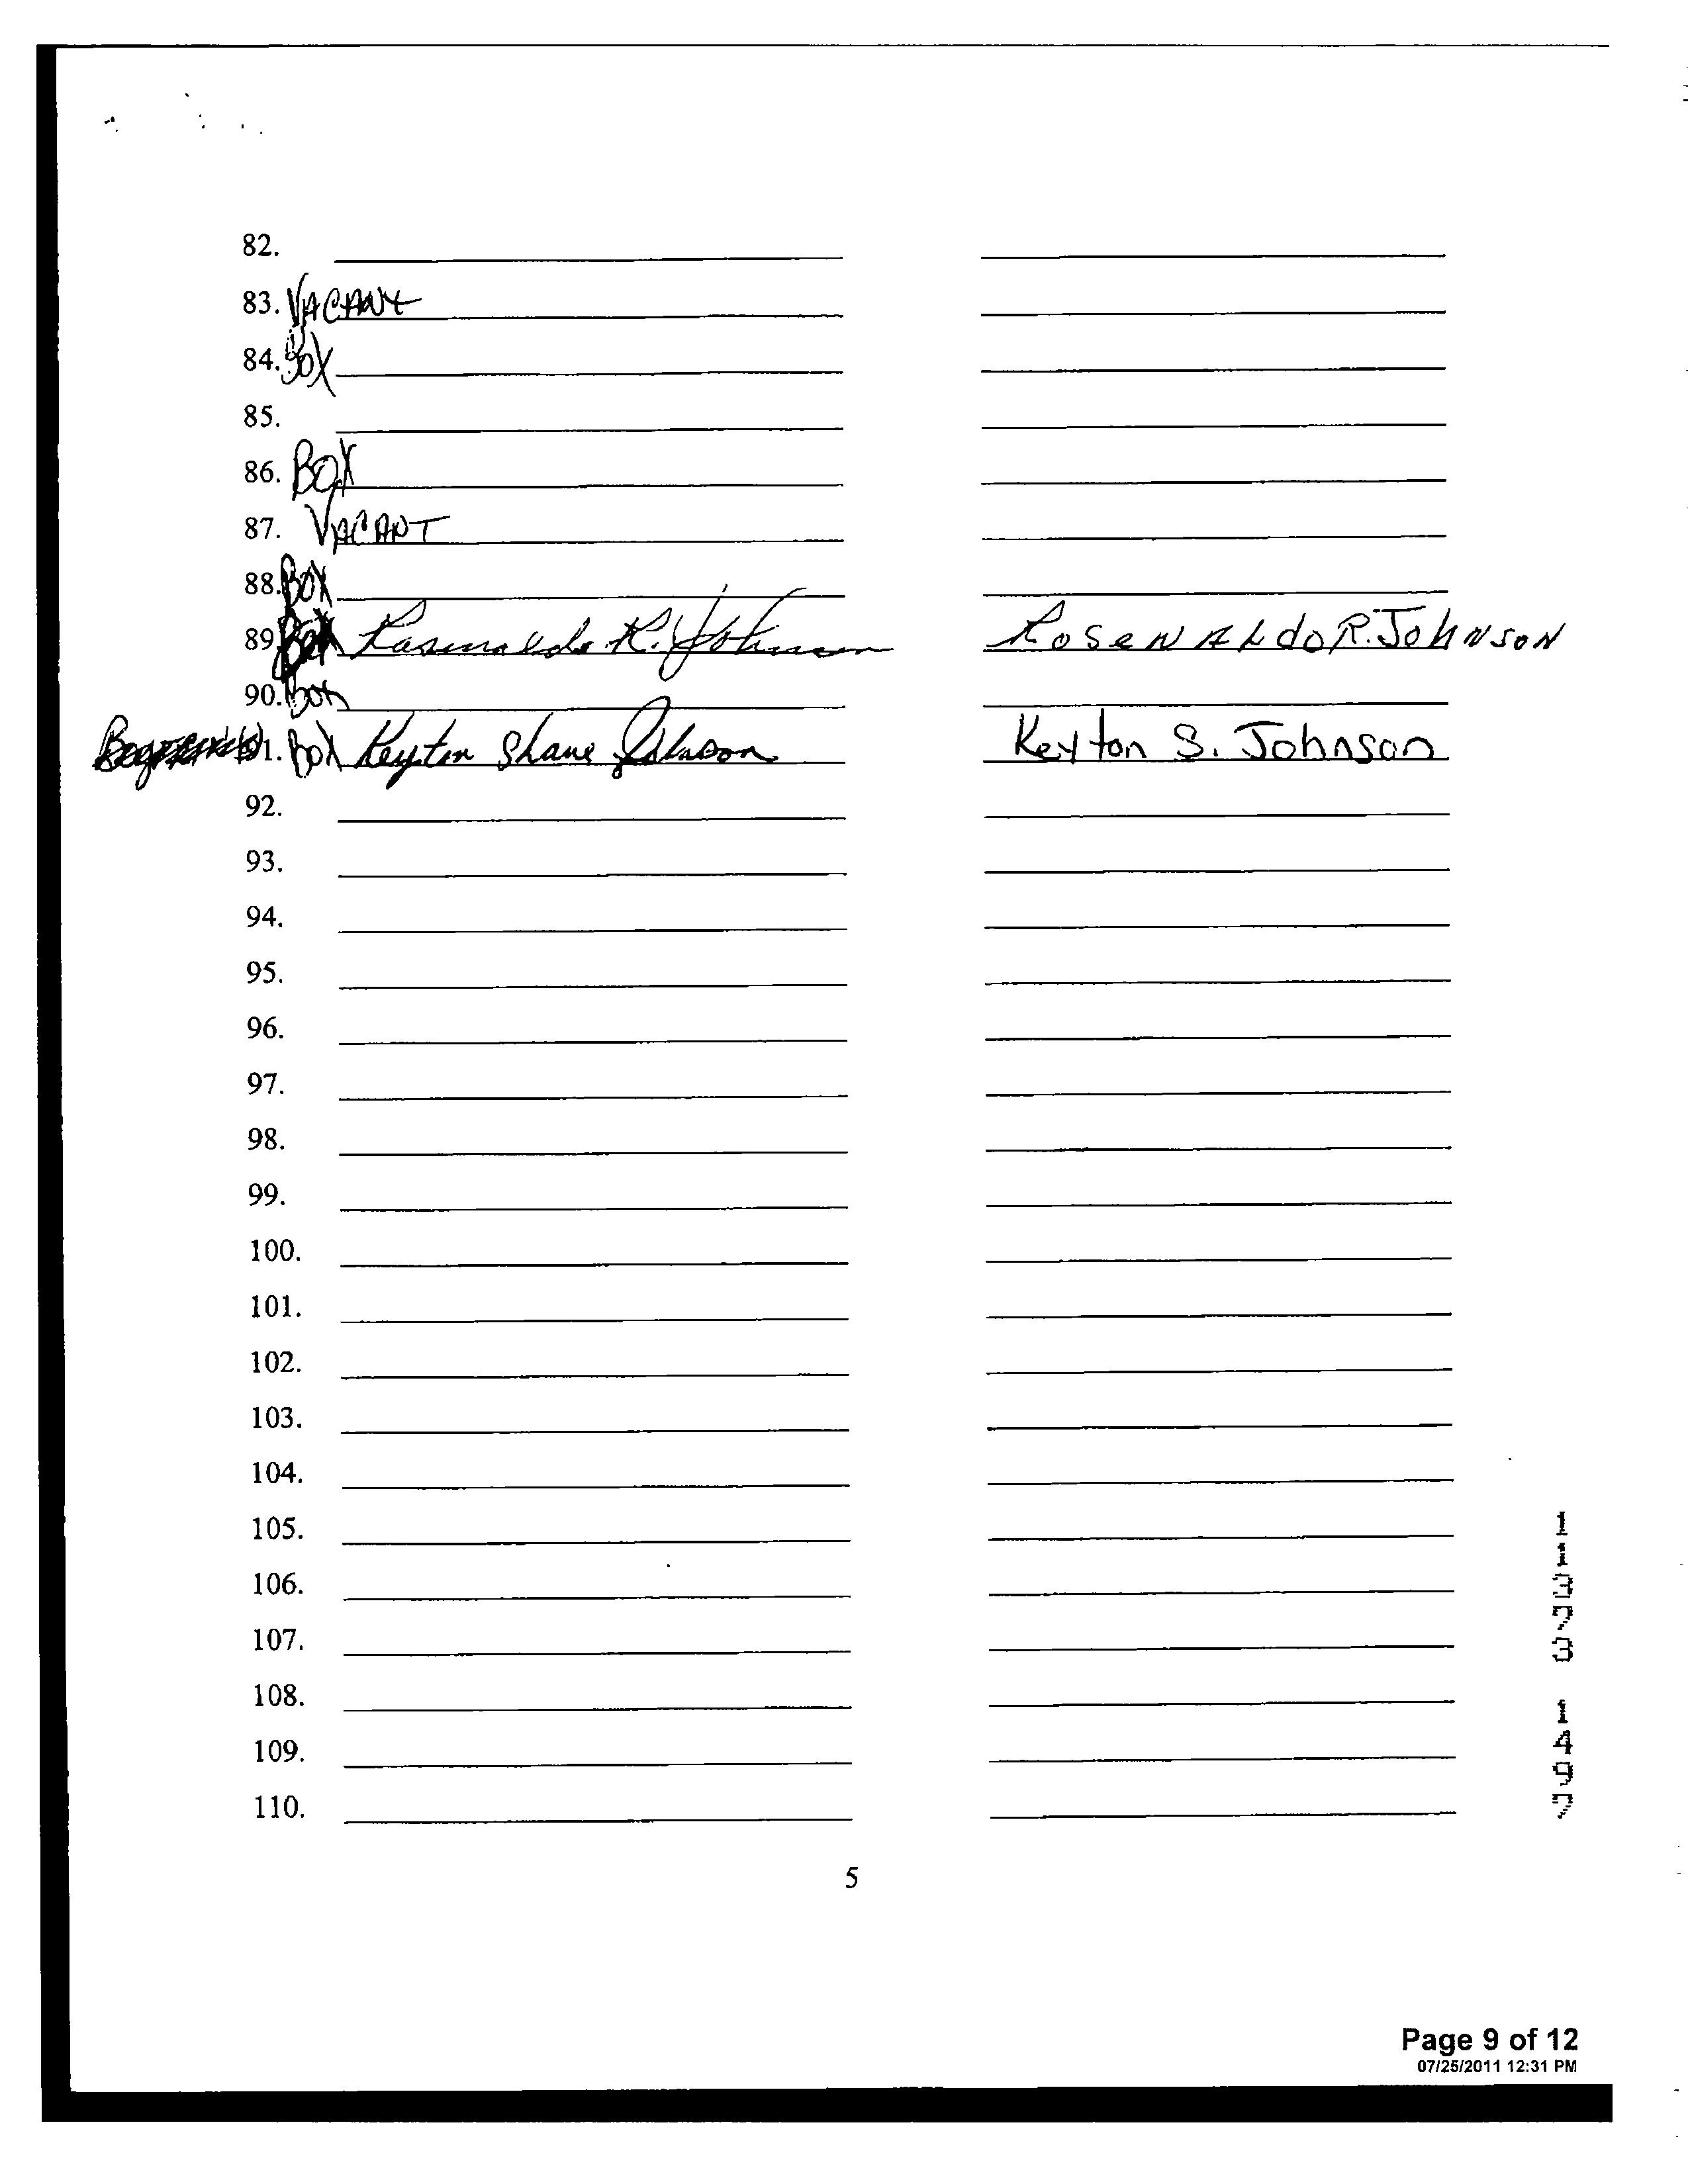 82.
83. VACANT
84. BOX
85.
86. BOX
87. VACANT
88. BOX
89 BOX Rosenaldo R. Johnson RoseNALdo R. JohNsoN
90. BOX
1. BOX Keyton Shane Johnson Keyton S. Johnson
92.
93.
94.
95.
96.
97.
98.
99.
100.
101.
102.
103.
104.
105.
106.
107.
108.
109.
110.
11373 1497
5
Page 9 of 12
07/25/2011 12:31 PM